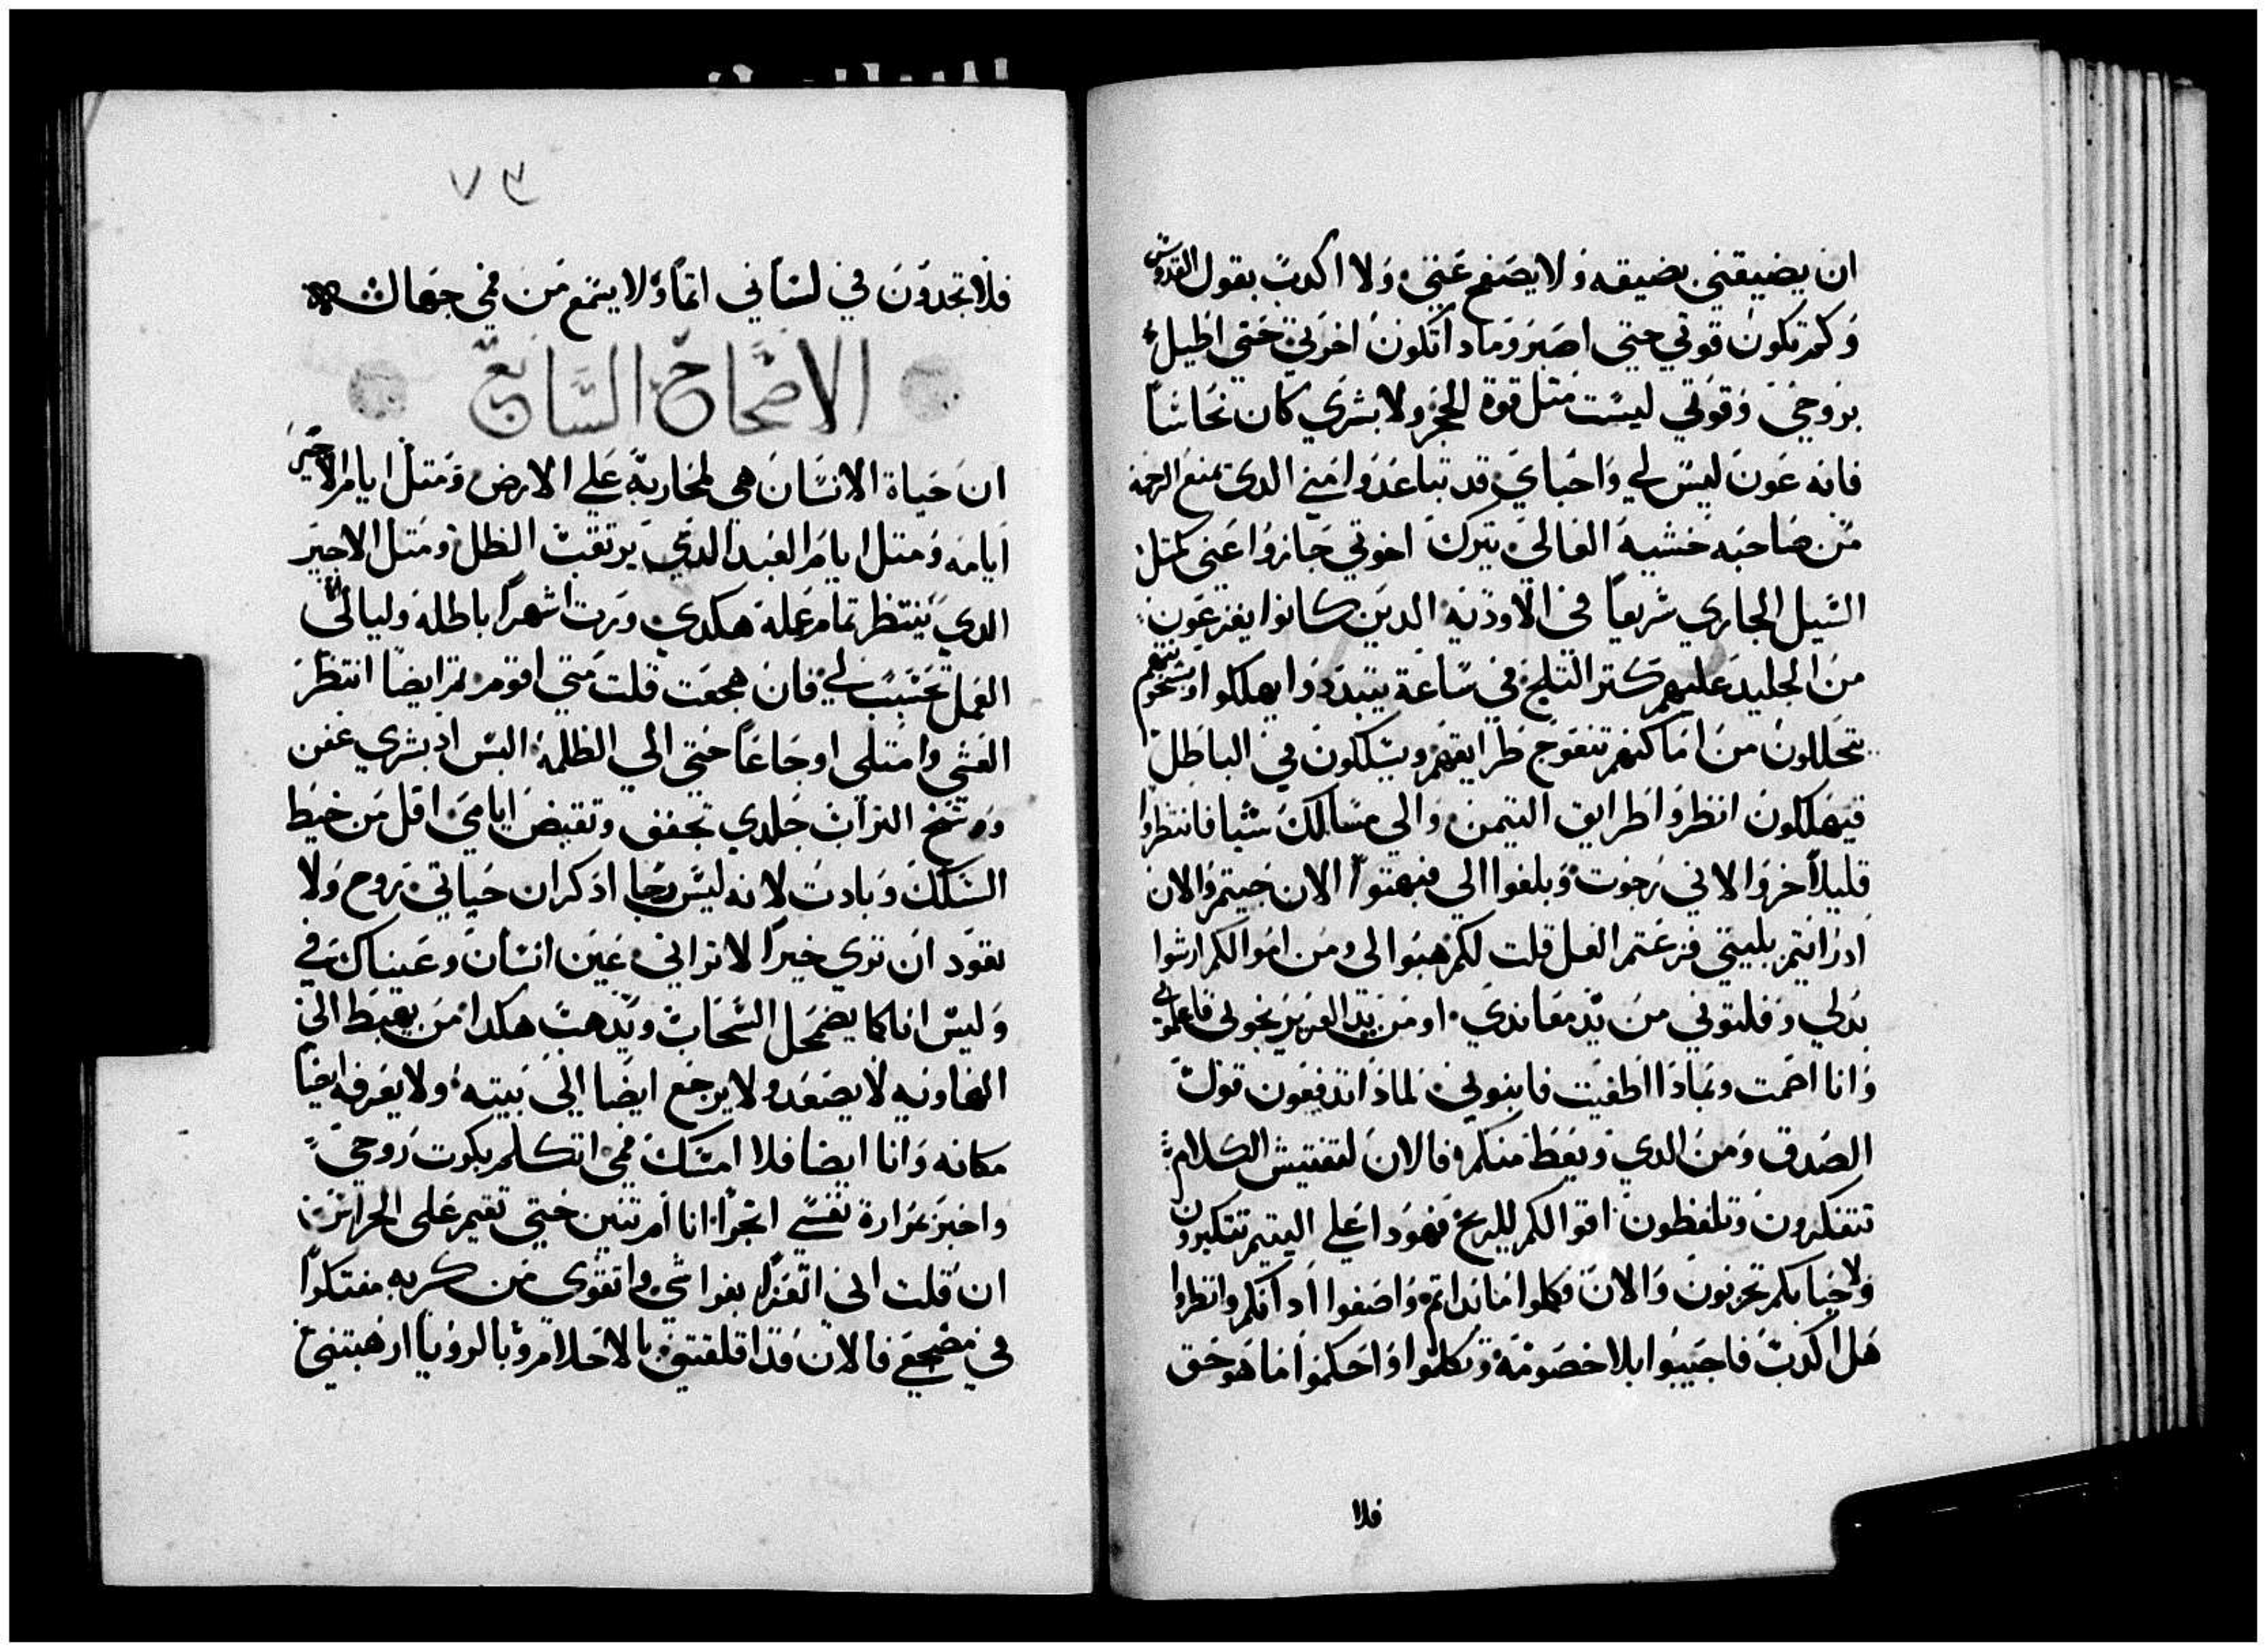 ان يضيقني بضيقه ولا يصفح عني ولا اكدب بقول القدوس
وكم تكون قوتي حتي اصبر وماذا تكون اخرتي حتي اطيل
بروحي وقوتي ليست مثل قوة الحجر ولا بشري كان نحاسًا
فانه عون ليس لي واحباي قد تباعدوا مني الدي يمنع الرحمه
من صاحبه خشية العالي يترك اخوتي جازوا عني كمثل
السيل الجاري سريعًا في الاوديه الدين كانوا يفزعون
من الجليد عليهم كتر الثلج في ساعة يتبددوا يهلكوا
يتحللون من اماكنهم تتعوج طرايقهم ويسلكون في الباطل
فيهلكون انظروا طرايق التيمن والي مسالك سبا فانتظروا
قليلاً خزوا لاني رجوت وبلغوا الي فبهتوا الان جيتم والان
اد رايتم بليتي فزعتم العل قلت لكم هبوا لي ومن اموالكم ارشوا
بدلي وفلتوني من يد معاندي او من يد العزيز نجوني فاعلموني
وانا اصمت وبماذا اطغيت فاينوني لماذا تدفعون قول
الصدق ومن الدي ويعظ منكم فالان لتفتيش الكلام
تتفكرون وتلفظون اقوالكم للريح فهوذا علي اليتيم تتكبرون
ولاحبابكم تحزنون والان فكلوا ما بداتم واصغوا اد اتكلم وانظروا
هل اكدب فاجيبوا بلا خصومة وتكلموا واحكموا ما هو حق
فلا
٧٣
فلا تجدون في لساني اثمًا ولا يسمع من فمي جهالة
الاصحاح السابع
ان حياة الانسان هي لمحاربة علي الارض ومثل ايام الاجير
ايامه ومثل ايام العبد الدي يرتقب الظل ومثل الاجير
الدي ينتظر تمام عمله هكدي ورت اشهرًا باطله وليالي
العمل تحتسب لي فان هجعت قلت متي اقوم تم ايضًا انتظر
العشي وامتلي اوجاعًا حتي الي الظلمة البس اد بشري عفن
ووسخ التراب جلدي تجفف وتقبض ايامي اقل من خيط
السكك وبادت لانه ليس رجا ادكر ان حياتي روح ولا
تعود ان تري خيرًا لا تراني عين انسان وعيناك في
وليس انا كما يضمحل السحاب ويدهب هكدا من يهبط الي
الهاويه لا يصعد ولا يرجع ايضًا الي بيته ولا يعرفه ايضًا
مكانه وانا ايضا فلا امسك فمي اتكلم بكرب روحي
واخبر بمرارة نفسي ابحرًا انا ام تنين حتي تقيم علي الحراس
ان قلت اني اتعزا بفراشي واتقوي من كربه مفتكرًا
في مضجعي فالان قد اقلقتني بالاحلام وبالرويا ارهبتني